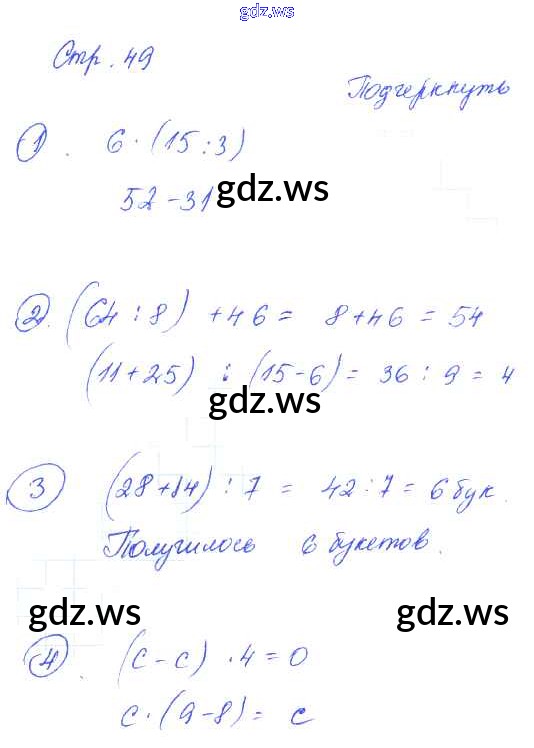 gdz.ws
Стр. 49
Подчеркнуть
1. 6 · (15 : 3)
52 - 31
gdz.ws
2. (64 : 8) + 46 = 8 + 46 = 54
(11 + 25) : (15 - 6) = 36 : 9 = 4
gdz.ws
3 (28 + 14) : 7 = 42 : 7 = 6 бук.
Получилось 6 букетов.
gdz.ws gdz.ws
4. (с - с) · 4 = 0
с · (9 - 8) = с